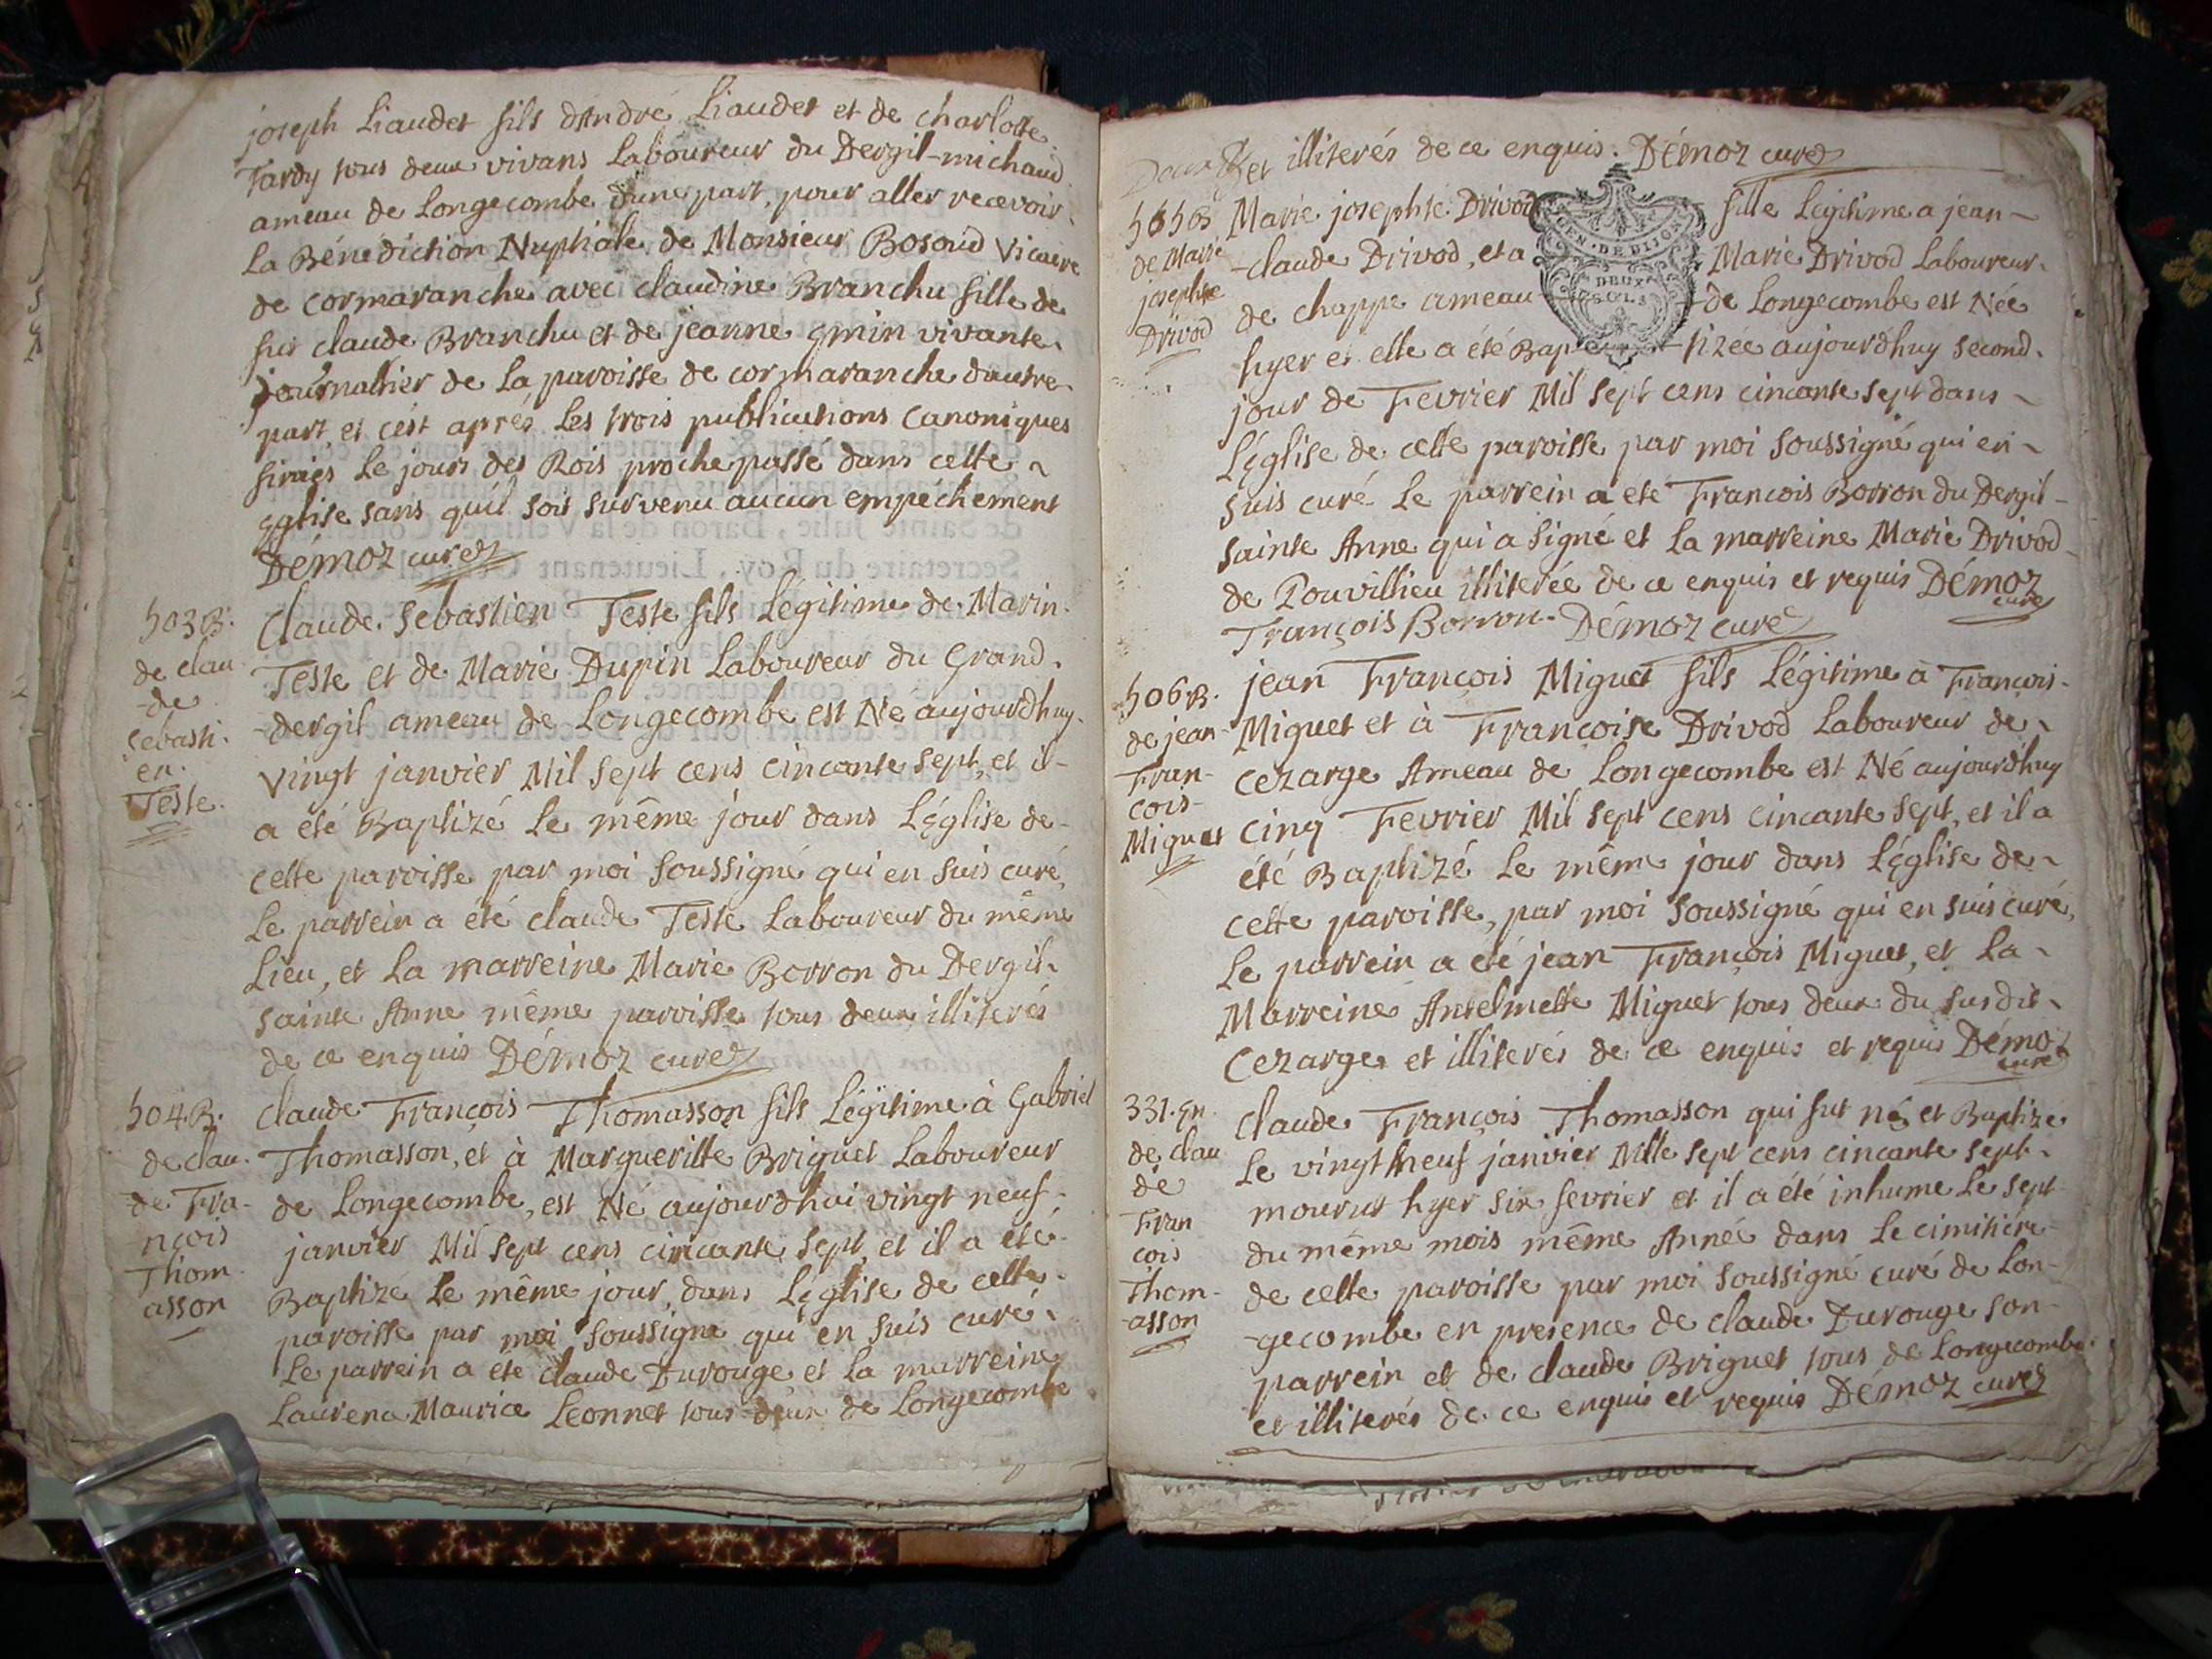 joseph Liaudet fils dAndré Liaudet et de charlotte
Tardy tous deux vivans Laboureur du Dergil-michaud
ameau de Longecombe d'une part, pour aller recevoir
La Bénédiction Nuptiale de Monsieur Bosoud Vicaire
de cormaranche avec claudine Branchu fille de
fut claude Branchu et de jeanne Emin vivante
journallier de La paroisse de cormaranche dautre
part, et c'est aprés Les trois publications Canoniques
finiës Le jours des Rois proche passé dans cette
Eglise sans qu'il soit survenu aucun empéchement
Démoz curé
503 B.
de clau
-de
sebasti-
en
Teste.
Claude Sebastien Teste fils Légitime de Marin
Teste et de Marie Dupin Laboureur du Grand
-dergil ameau de Longecombe est Né aujourdhuy
vingt janvier Mil sept cens cincante sept, et il-
a été Baptizé Le même jour dans L'Eglise de-
cette paroisse par moi soussigné qui en suis curé,
Le parrein a été claude Teste Laboureur du même
Lieu, et La marreine Marie Borron du Dergil-
sainte Anne même paroisse tous deux illiterés
de ce enquis Démoz curé
504. B.
de clau-
de Fra-
nçois
Thom-
asson
Claude François Thomasson fils Légitime à Gabriel
Thomasson, et à Margueritte Briguet Laboureur
de Longecombe, est Né aujourdhui vingt neuf-
janvier Mil sept cens cincante sept, et il a été
Baptizé Le même jour, dans L'Eglise de cette
paroisse par moi soussigné qui en suis curé.
Le parrein a été claude Durouge et La marreine
Laurence Maurice Leonnet tous deux de Longecombe
et illiterés de ce enquis. Démoz curé
505 B
de Marie
josephte
Drivod
GEN. DE DIJON
DEUX
SOLS
Marie josephte Drivod fille Légitime a jean-
-claude Drivod, et a Marie Drivod Laboureur
de chappe ameau de Longecombe est Née
hyer et elle a été Bap-tizée aujourdhuy second
jour de Fevrier Mil sept cens cincante sept dans
L'Eglise de cette paroisse par moi soussigné qui en
suis curé Le parrein a été François Borron du Dergil-
sainte Anne qui a signé et La marreine Marie Drivod
de Pouvillieu illiterée de ce enquis et requis Démoz
curé
François Borron. Démoz curé
506 B.
de jean
Fran-
çois-
Miguet
jean François Miguet fils Légitime à François-
Miguet et à Françoise Drivod Laboureur de
cezarge Ameau de Longecombe est Né aujourdhuy
cinq Fevrier Mil sept cens cincante sept, et il a
été Baptizé Le même jour dans L'Eglise de
cette paroisse, par moi soussigné qui en suis curé,
Le parrein a été jean François Miguet, et La
Marreine Antelmette Miguet tous deux du susdit
Cezarge et illiterés de ce enquis et requis Démoz
curé
331. En
de clau
de
Fran
çois
Thom-
-asson
Claude François Thomasson qui fut né et Baptizé
Le vingt neuf janvier Mille sept cens cincante sept
mourut hyer six fevrier et il a été inhume Le sept
du même mois même Année dans Le cimitière
de cette paroisse par moi soussigné curé de Lon-
-gecombe en presence de claude Durouge son
parrein et de claude Briguet tous de Longecombe
et illiterés de ce enquis et requis Démoz curé